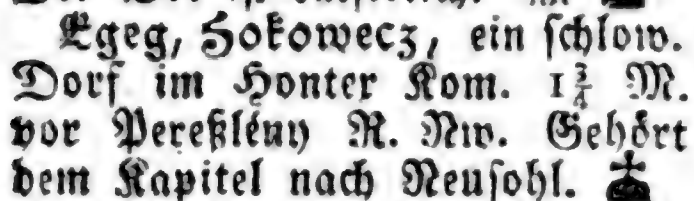 Egeg, Hokowecz, ein schlow.
Dorf im Honter Kom. 1¾ M.
vor Pereßlény R. Nw. Gehört
dem Kapitel nach Neusohl.